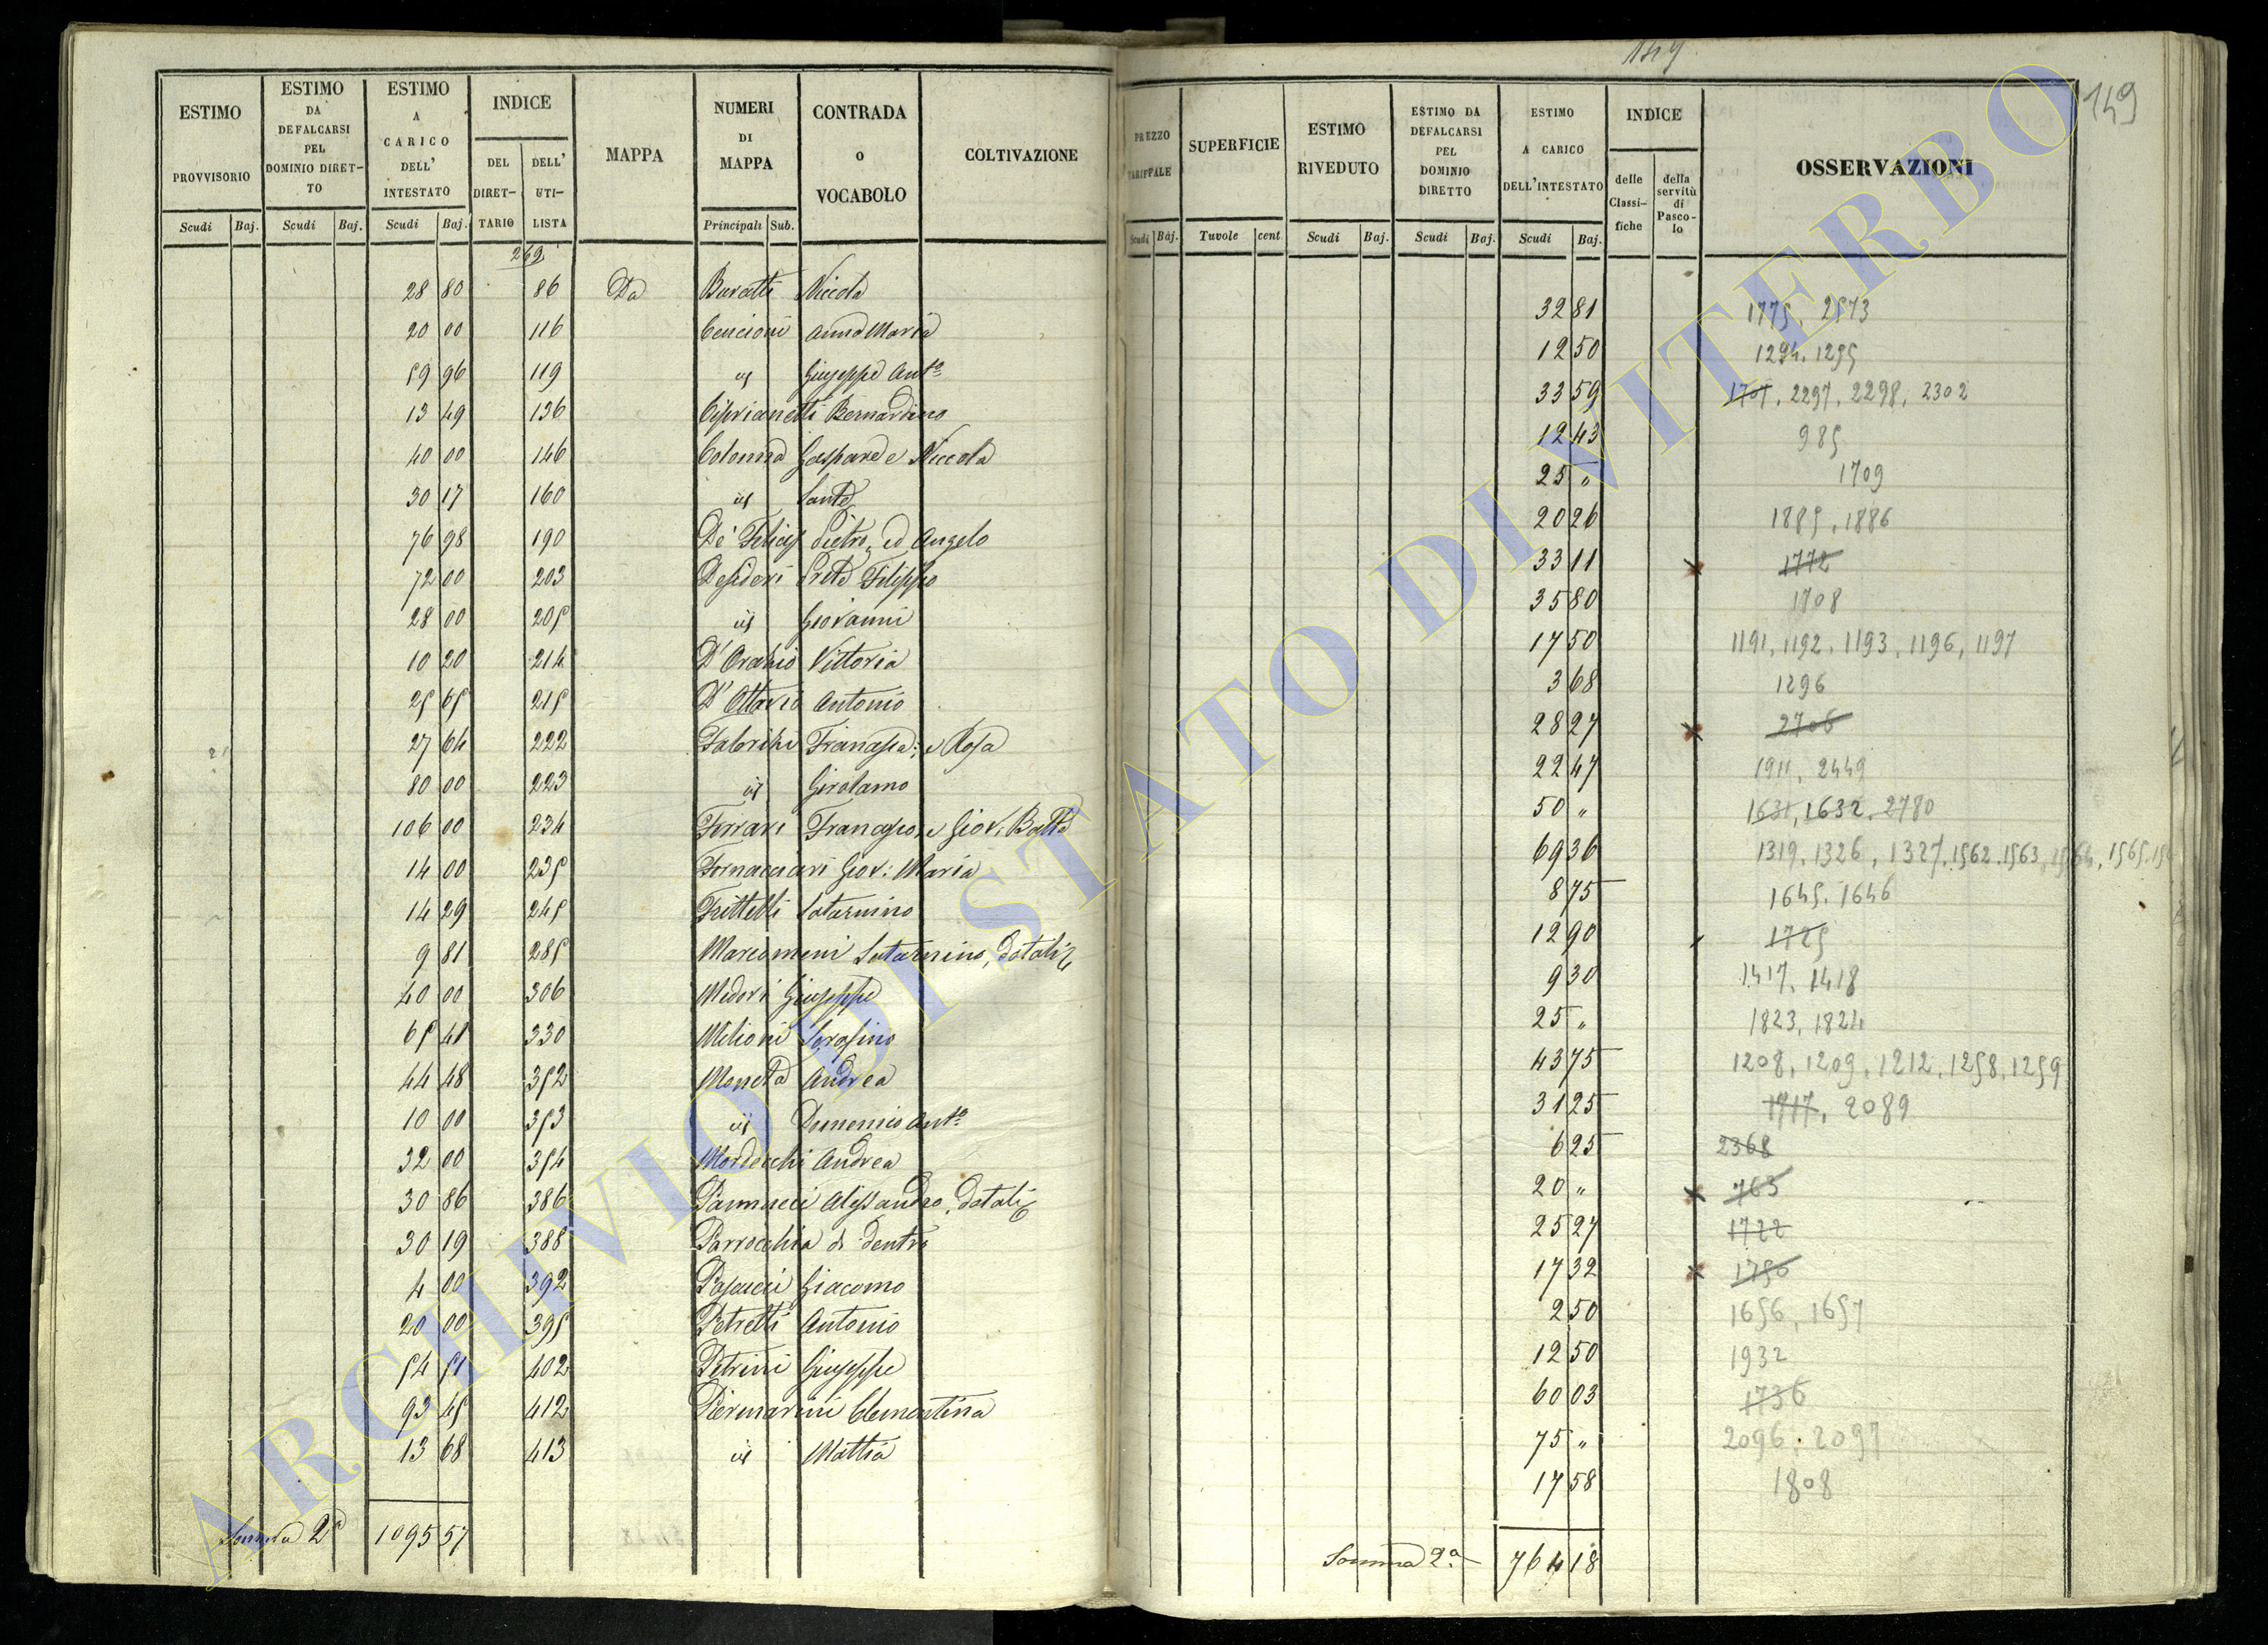 149
149
ESTIMO PROVVISORIO
ESTIMO DA DEFALCARSI PEL DOMINIO DIRET-TO
ESTIMO A CARICO DELL' INTESTATO
INDICE
DEL DIRET-TARIO
DELL' UTI-LISTA
MAPPA
NUMERI DI MAPPA
CONTRADA o VOCABOLO
COLTIVAZIONE
Scudi Baj. Scudi Baj. Scudi Baj. Principali Sub.
PREZZO TARIFFALE
SUPERFICIE
ESTIMO RIVEDUTO
ESTIMO DA DEFALCARSI PEL DOMINIO DIRETTO
ESTIMO A CARICO DELL'INTESTATO
INDICE
delle Classi-fiche
della servitù di Pasco-lo
OSSERVAZIONI
Scudi Baj. Tavole cent Scudi Baj. Scudi Baj. Scudi Baj.
269
28 80 86 Da Buratti Niccola 32 81 1775, 2573
20 00 116 Cencioni Anna Maria 12 50 1294, 1295
59 96 119 id Giuseppe Ant.o 33 59 1707, 2297, 2298, 2302
13 49 136 Ciprianetti Bernardino 12 43 985
40 00 146 Colonna Gaspare e Niccola 25 " 1709
30 17 160 id Sante 20 26 1885, 1886
76 98 190 De Felicis Pietro, ed Angelo 33 11 x 1772
72 00 203 Desideri Prete Filippo 35 80 1708
28 00 205 id Giovanni 17 50 1191, 1192, 1193, 1196, 1197
10 20 214 D'Orchio Vittoria 3 68 1296
25 65 215 D'Ottavio Antonio 28 27 x 2706
27 64 222 Francesca, e Rosa 22 47 1911, 2449
80 00 223 id Girolamo 50 " 1631, 1632, 2780
106 00 234 Ferrari Francesco, e Giov. Batta 69 36 1319, 1326, 1327, 1562, 1563, 1564, 1565
14 00 235 Fornacciari Giov: Maria 8 75 1645, 1646
14 29 245 Frittelli Saturnino 12 90 1725
9 81 285 Marcomeni Saturnino, dotali 9 30 1417, 1418
40 00 306 Medori Giuseppe 25 " 1823, 1824
65 41 330 Milioni Serafino 43 75 1208, 1209, 1212, 1258, 1259
44 48 352 Moneta Andrea 31 25 1717, 2089
10 00 353 id Domenico Ant.o 6 25 2368
32 00 354 Mordecchi Andrea 20 " x 763
30 86 386 Pannucci Alessandro, dotali 25 27 1722
30 19 388 Parrocchia di dentro 17 32 x 1750
4 00 392 Pasqucci Giacomo 2 50 1656, 1657
20 00 395 Petretti Antonio 12 50 1932
54 51 402 Petrini Giuseppe 60 03 1736
93 45 412 Piermarini Clementina 75 " 2096, 2097
13 68 413 id Mattia 17 58 1808
Somma 2a 1095 57
Somma 2.a 764 18
ARCHIVIO DI STATO DI VITERBO